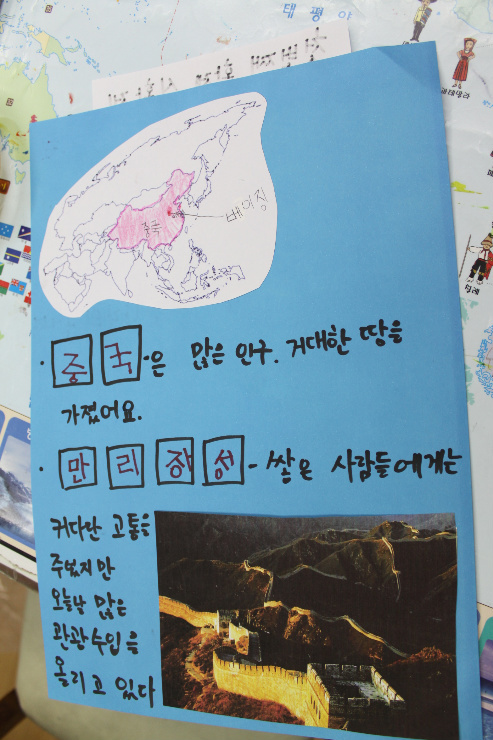 태평야
베이징
중국
· 중국은 많은 인구. 거대한 땅을
가졌어요.
· 만리장성 - 쌓은 사람들에게는
커다란 고통을
주었지만
오늘날 많은
관광수입을
올리고 있다
칠레